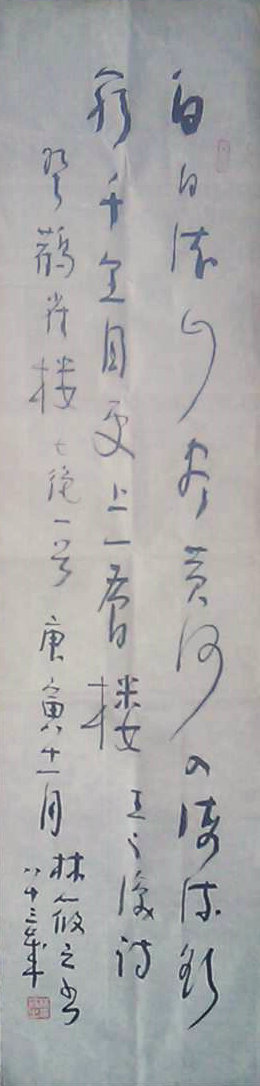 白日依山尽黄河入海流欲
穷千里目更上一层楼 王之涣诗
登鹳雀楼 七绝一首 庚寅十一月 林筱之书
八十三年